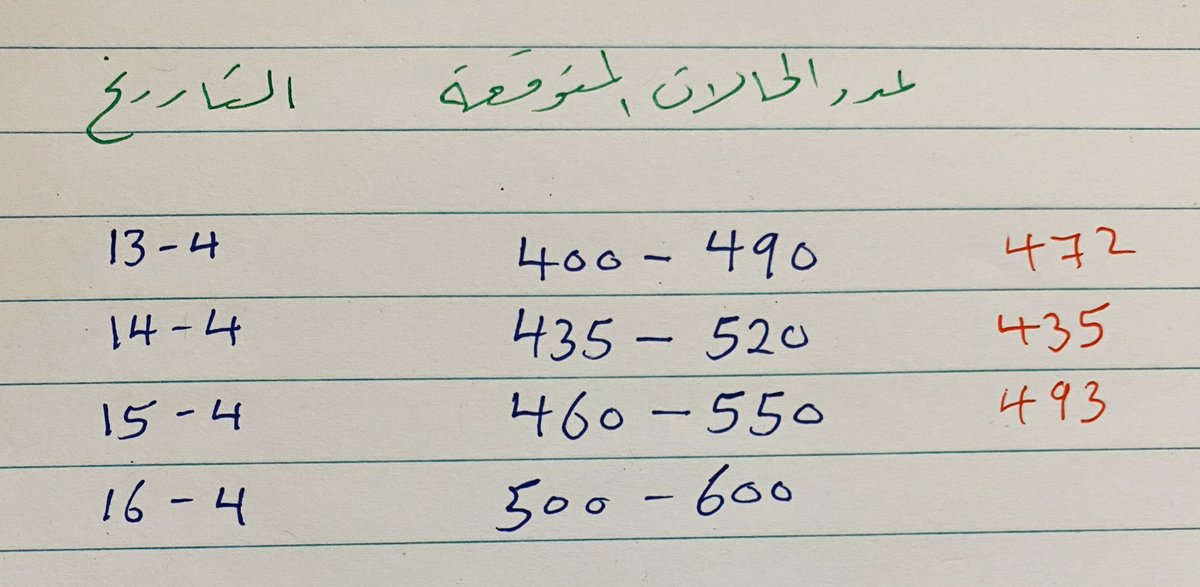 عدد الحالات المتوقعة التاريخ
13-4 400 - 490 472
14-4 435 - 520 435
15-4 460 - 550 493
16-4 500 - 600